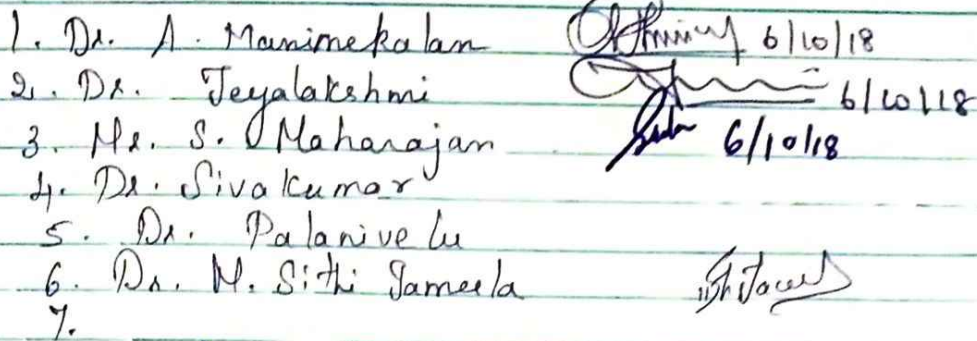 1. Dr. A. Manimekalan 6/10/18
2. Dr. Jeyalakshmi 6/10/18
3. Mr. S. Maharajan 6/10/18
4. Dr. Sivakumar
5. Dr. Palanivelu
6. Dr. M. Sithi Jameela
7.